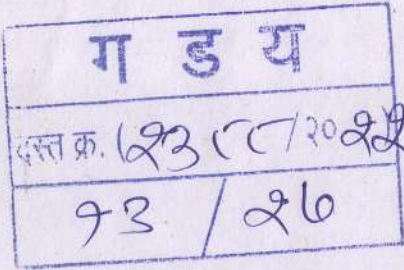 ग ड य
दस्त क्र. (२३८८/२०२२
१३ / २७